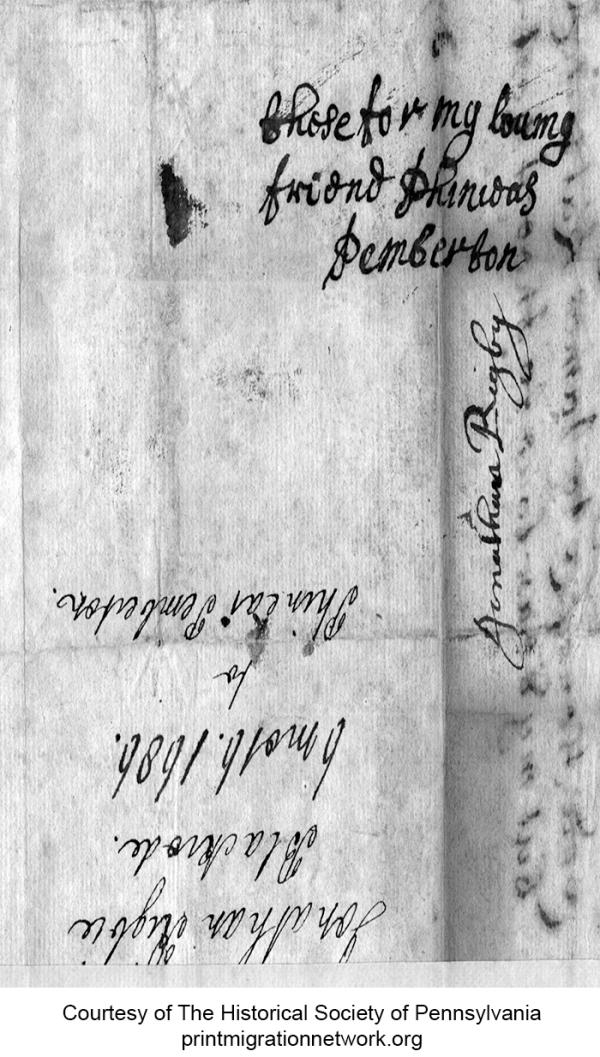 those for my louing
friend Phineas
Pemberton
Jonathan Rigby
Jonathan Rigbie
Blackrode.
6 moth. 1686.
to
Phineas Pemberton.
Courtesy of The Historical Society of Pennsylvania
printmigrationnetwork.org